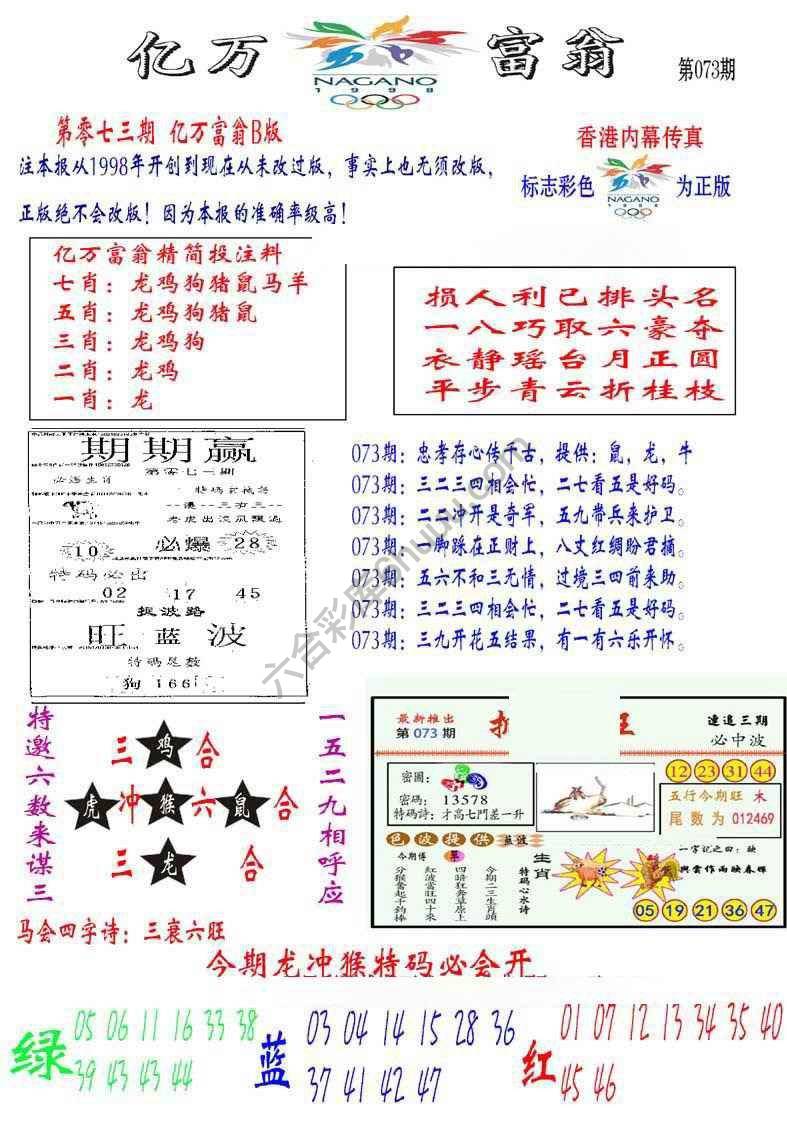 亿万富翁
NAGANO
1998
第073期
第零七三期 亿万富翁B版
香港内幕传真
注本报从1998年开创到现在从未改过版，事实上也无须改版，
标志彩色 NAGANO 1998 为正版
正版绝不会改版！因为本报的准确率级高！
亿万富翁精简投注料
七肖：龙鸡狗猪鼠马羊
五肖：龙鸡狗猪鼠
三肖：龙鸡狗
二肖：龙鸡
一肖：龙
损人利已排头名
一八巧取六豪夺
衣静瑶台月正圆
平步青云折桂枝
期期赢
必爆
10
28
特码必出
02 17 45
捉波路
旺蓝波
特码尾数
狗166
073期：忠孝存心传千古，提供：鼠，龙，牛
073期：三二三四相会忙，二七看五是好码。
073期：二二冲开是奇军，五九带兵来护卫。
073期：一脚踩在正财上，八丈红绸盼君摘。
073期：五六不和三无情，过境三四前来助。
073期：三二三四相会忙，二七看五是好码。
073期：三九开花五结果，有一有六乐开怀。
六合彩库6huu.com
特邀六数来谋三
三鸡合
虎冲猴六鼠合
三龙合
一五二九相呼应
马会四字诗：三衰六旺
最新推出
第073期
连追三期
必中波
12 23 31 44
密圖：
密碼：13578
特碼詩：才高七門差一升
五行今期旺 木
尾数为 012469
色波提供 蓝波
今期博 草
今期二三生肖頭
四暗狂奔草原上
紅波當旺四十來
分猴奮起千鈞棒
特码心水诗
生肖
一字记之曰：映
興雲作雨映春暉
05 19 21 36 47
今期龙冲猴特码必会开
绿
05 06 11 16 33 38
39 43 43 44
蓝
03 04 14 15 28 36
37 41 42 47
红
01 07 12 13 34 35 40
45 46